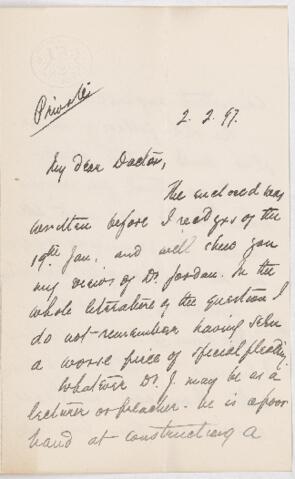 Private
2. 2. 97.
My dear Doctor,
The enclosed was
written before I recd yrs of the
19th Jan, and will shew you
my views of Dr. Jordan. In the
whole literature of the question I
do not remember having seen
a worse piece of special pleading.
Whatever Dr. J. may be as a
lecturer or preacher - he is a poor
hand at constructing a